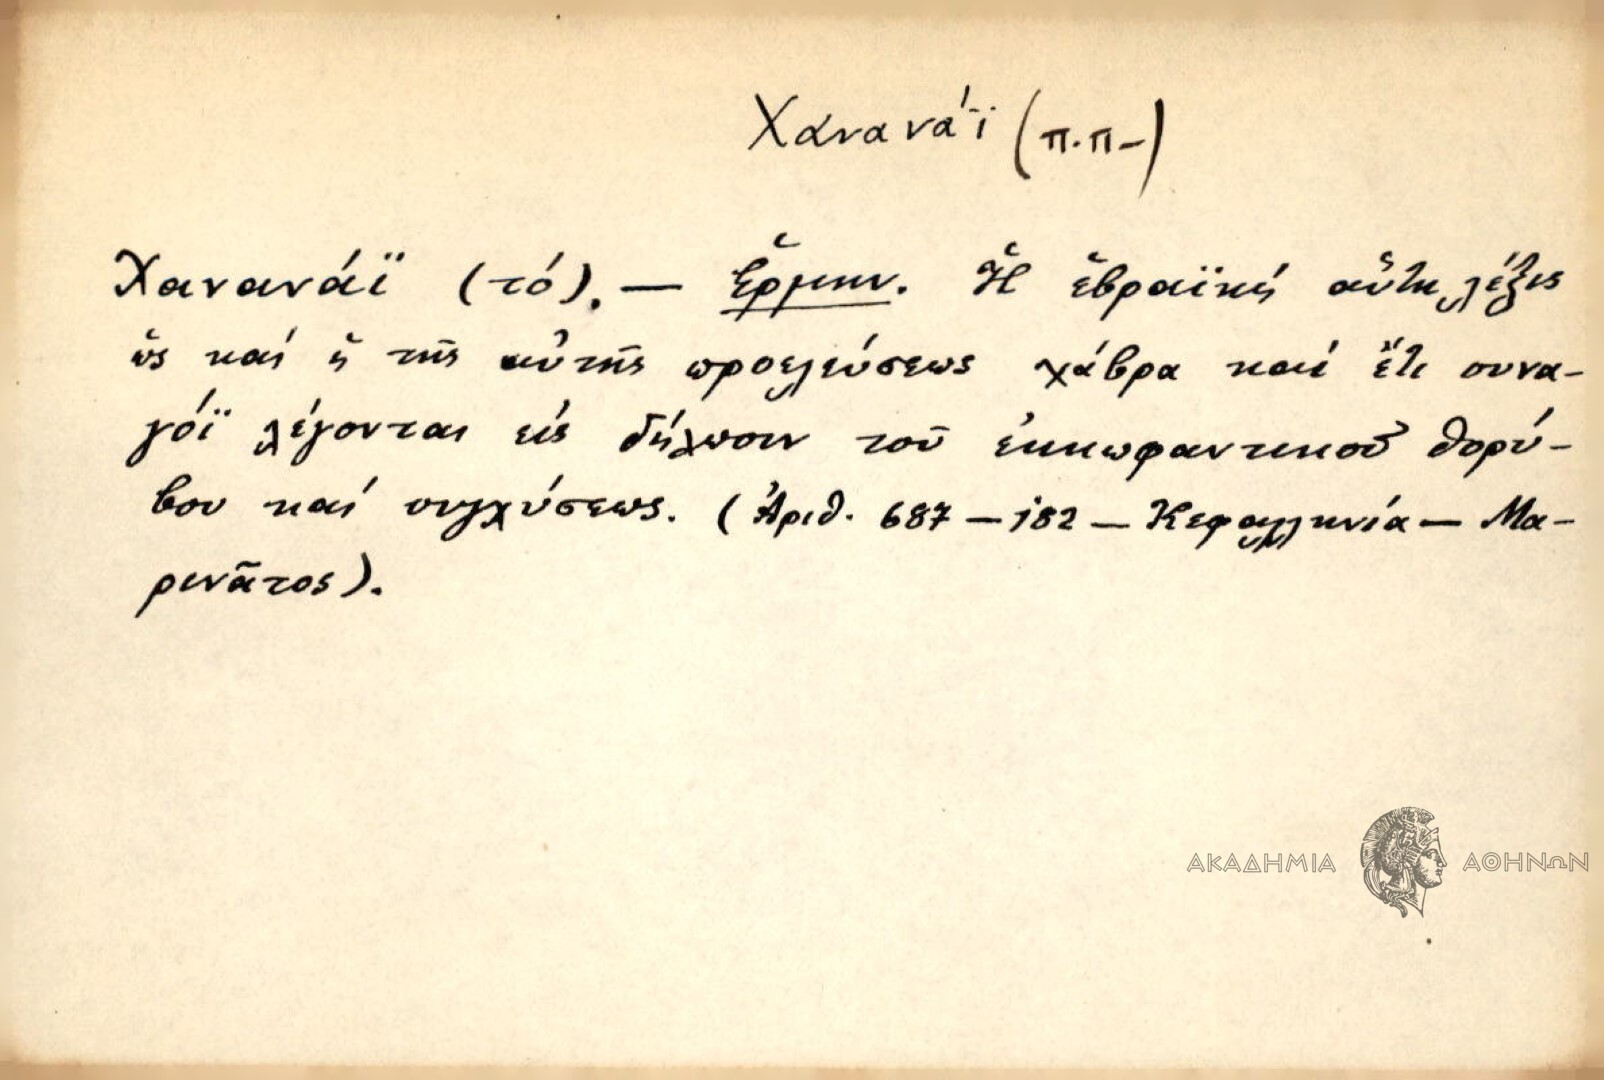 Χανανάϊ (π.π-)
Χανανάϊ (τό). — Ἑρμην. Ἡ ἑβραϊκή αὕτη λέξις
ὡς καί ἡ τῆς αὐτῆς προελεύσεως χάβρα καί ἔτι συνα-
γόϊ λέγονται εἰς δήλωσιν τοῦ ἐκκωφαντικοῦ θορύ-
βου καί συγχύσεως. (Ἀριθ. 687 — 182 — Κεφαλληνία — Μα-
ρινᾶτος).
ΑΚΑΔΗΜΙΑ ΑΘΗΝΩΝ